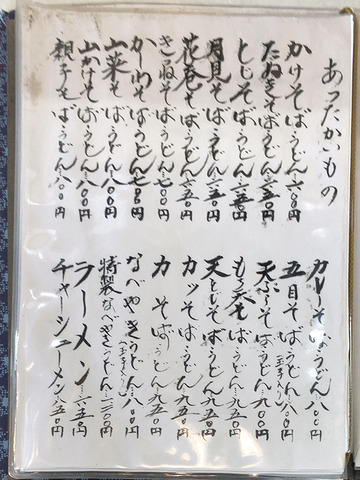 あったかいもの
かけそば・うどん 六〇〇円
たぬきそば・うどん 六五〇円
とじそば・うどん 六五〇円
月見そば・うどん 六五〇円
花巻そば・うどん 六五〇円
きつねそば・うどん 七〇〇円
かしわそば・うどん 七〇〇円
山菜そば・うどん 八〇〇円
山かけそば・うどん 八〇〇円
親子そば・うどん 八〇〇円
カレーそば・うどん 八〇〇円
五目そば・うどん 八〇〇円
天ぷらそば・うどん 九〇〇円
そば・うどん 九五〇円
天とじそば・うどん 九五〇円
カツそば・うどん 九五〇円
力そば・うどん 九五〇円
なべやきうどん 八〇〇円
特製なべやきうどん
ラーメン 六五〇円
チャーシューメン 八五〇円